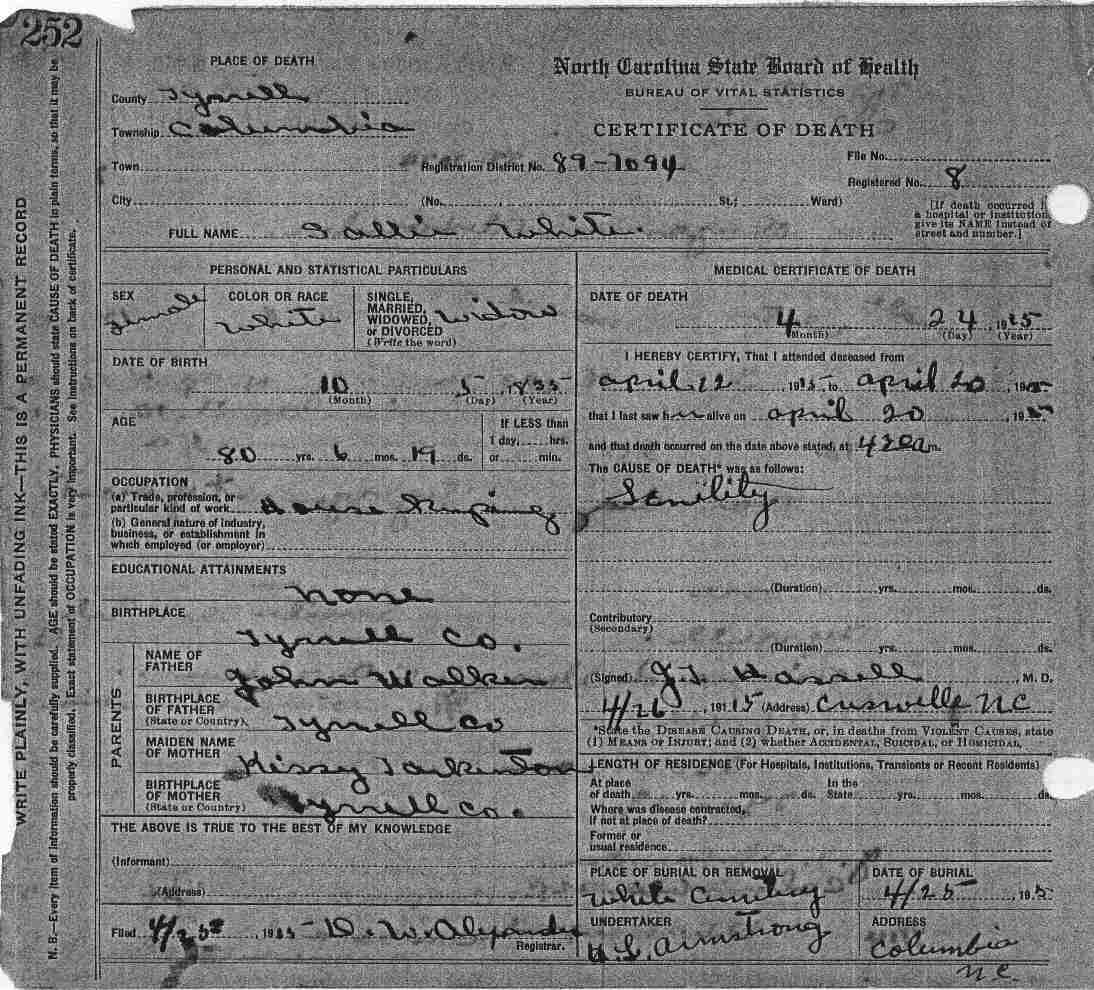 252
PLACE OF DEATH
North Carolina State Board of Health
BUREAU OF VITAL STATISTICS
CERTIFICATE OF DEATH
County Tyrrell
Township Columbia
Town
Registration District No. 89-7094
File No.
Registered No. 8
City
(No. St.; Ward)
[If death occurred in
a hospital or institution,
give its NAME instead of
street and number.]
FULL NAME Sallie White
PERSONAL AND STATISTICAL PARTICULARS
SEX
Female
COLOR OR RACE
White
SINGLE,
MARRIED,
WIDOWED,
or DIVORCED
(Write the word)
Widow
DATE OF BIRTH
10 5 1835
(Month) (Day) (Year)
AGE
80 yrs. 6 mos. 19 ds.
If LESS than
1 day, hrs.
or min.
OCCUPATION
(a) Trade, profession, or
particular kind of work House
(b) General nature of industry,
business, or establishment in
which employed (or employer)
EDUCATIONAL ATTAINMENTS
none
BIRTHPLACE
Tyrrell Co.
PARENTS
NAME OF
FATHER
John Walker
BIRTHPLACE
OF FATHER
(State or Country)
Tyrrell Co
MAIDEN NAME
OF MOTHER
Kissy Tarkenton
BIRTHPLACE
OF MOTHER
(State or Country)
Tyrrell Co.
THE ABOVE IS TRUE TO THE BEST OF MY KNOWLEDGE
(Informant)
(Address)
Filed 4/25, 191 D. W. Alexander
Registrar.
MEDICAL CERTIFICATE OF DEATH
DATE OF DEATH
4 24, 1915
(Month) (Day) (Year)
I HEREBY CERTIFY, That I attended deceased from
april 12, 1915 to april 20, 191
that I last saw h alive on april 20 191
and that death occurred on the date above stated, at m.
The CAUSE OF DEATH* was as follows:
Senility
(Duration) yrs. mos. ds.
Contributory
(Secondary)
(Duration) yrs. mos. ds.
(Signed) Hassell, M. D.
4/26, 19115 (Address) NC
*State the DISEASE CAUSING DEATH, or, in deaths from VIOLENT CAUSES, state
(1) MEANS OF INJURY; and (2) whether ACCIDENTAL, SUICIDAL, or HOMICIDAL.
LENGTH OF RESIDENCE (For Hospitals, Institutions, Transients or Recent Residents)
At place
of death yrs. mos. ds.
In the
State yrs. mos. ds.
Where was disease contracted,
if not at place of death?
Former or
usual residence
PLACE OF BURIAL OR REMOVAL
White Cemetery
DATE OF BURIAL
4/25 191
UNDERTAKER
Armstrong
ADDRESS
Columbia
NC
WRITE PLAINLY, WITH UNFADING INK—THIS IS A PERMANENT RECORD
N. B.—Every item of information should be carefully supplied. AGE should be stated EXACTLY. PHYSICIANS should state CAUSE OF DEATH in plain terms, so that it may be
properly classified. Exact statement of OCCUPATION is very important. See instructions on back of certificate.